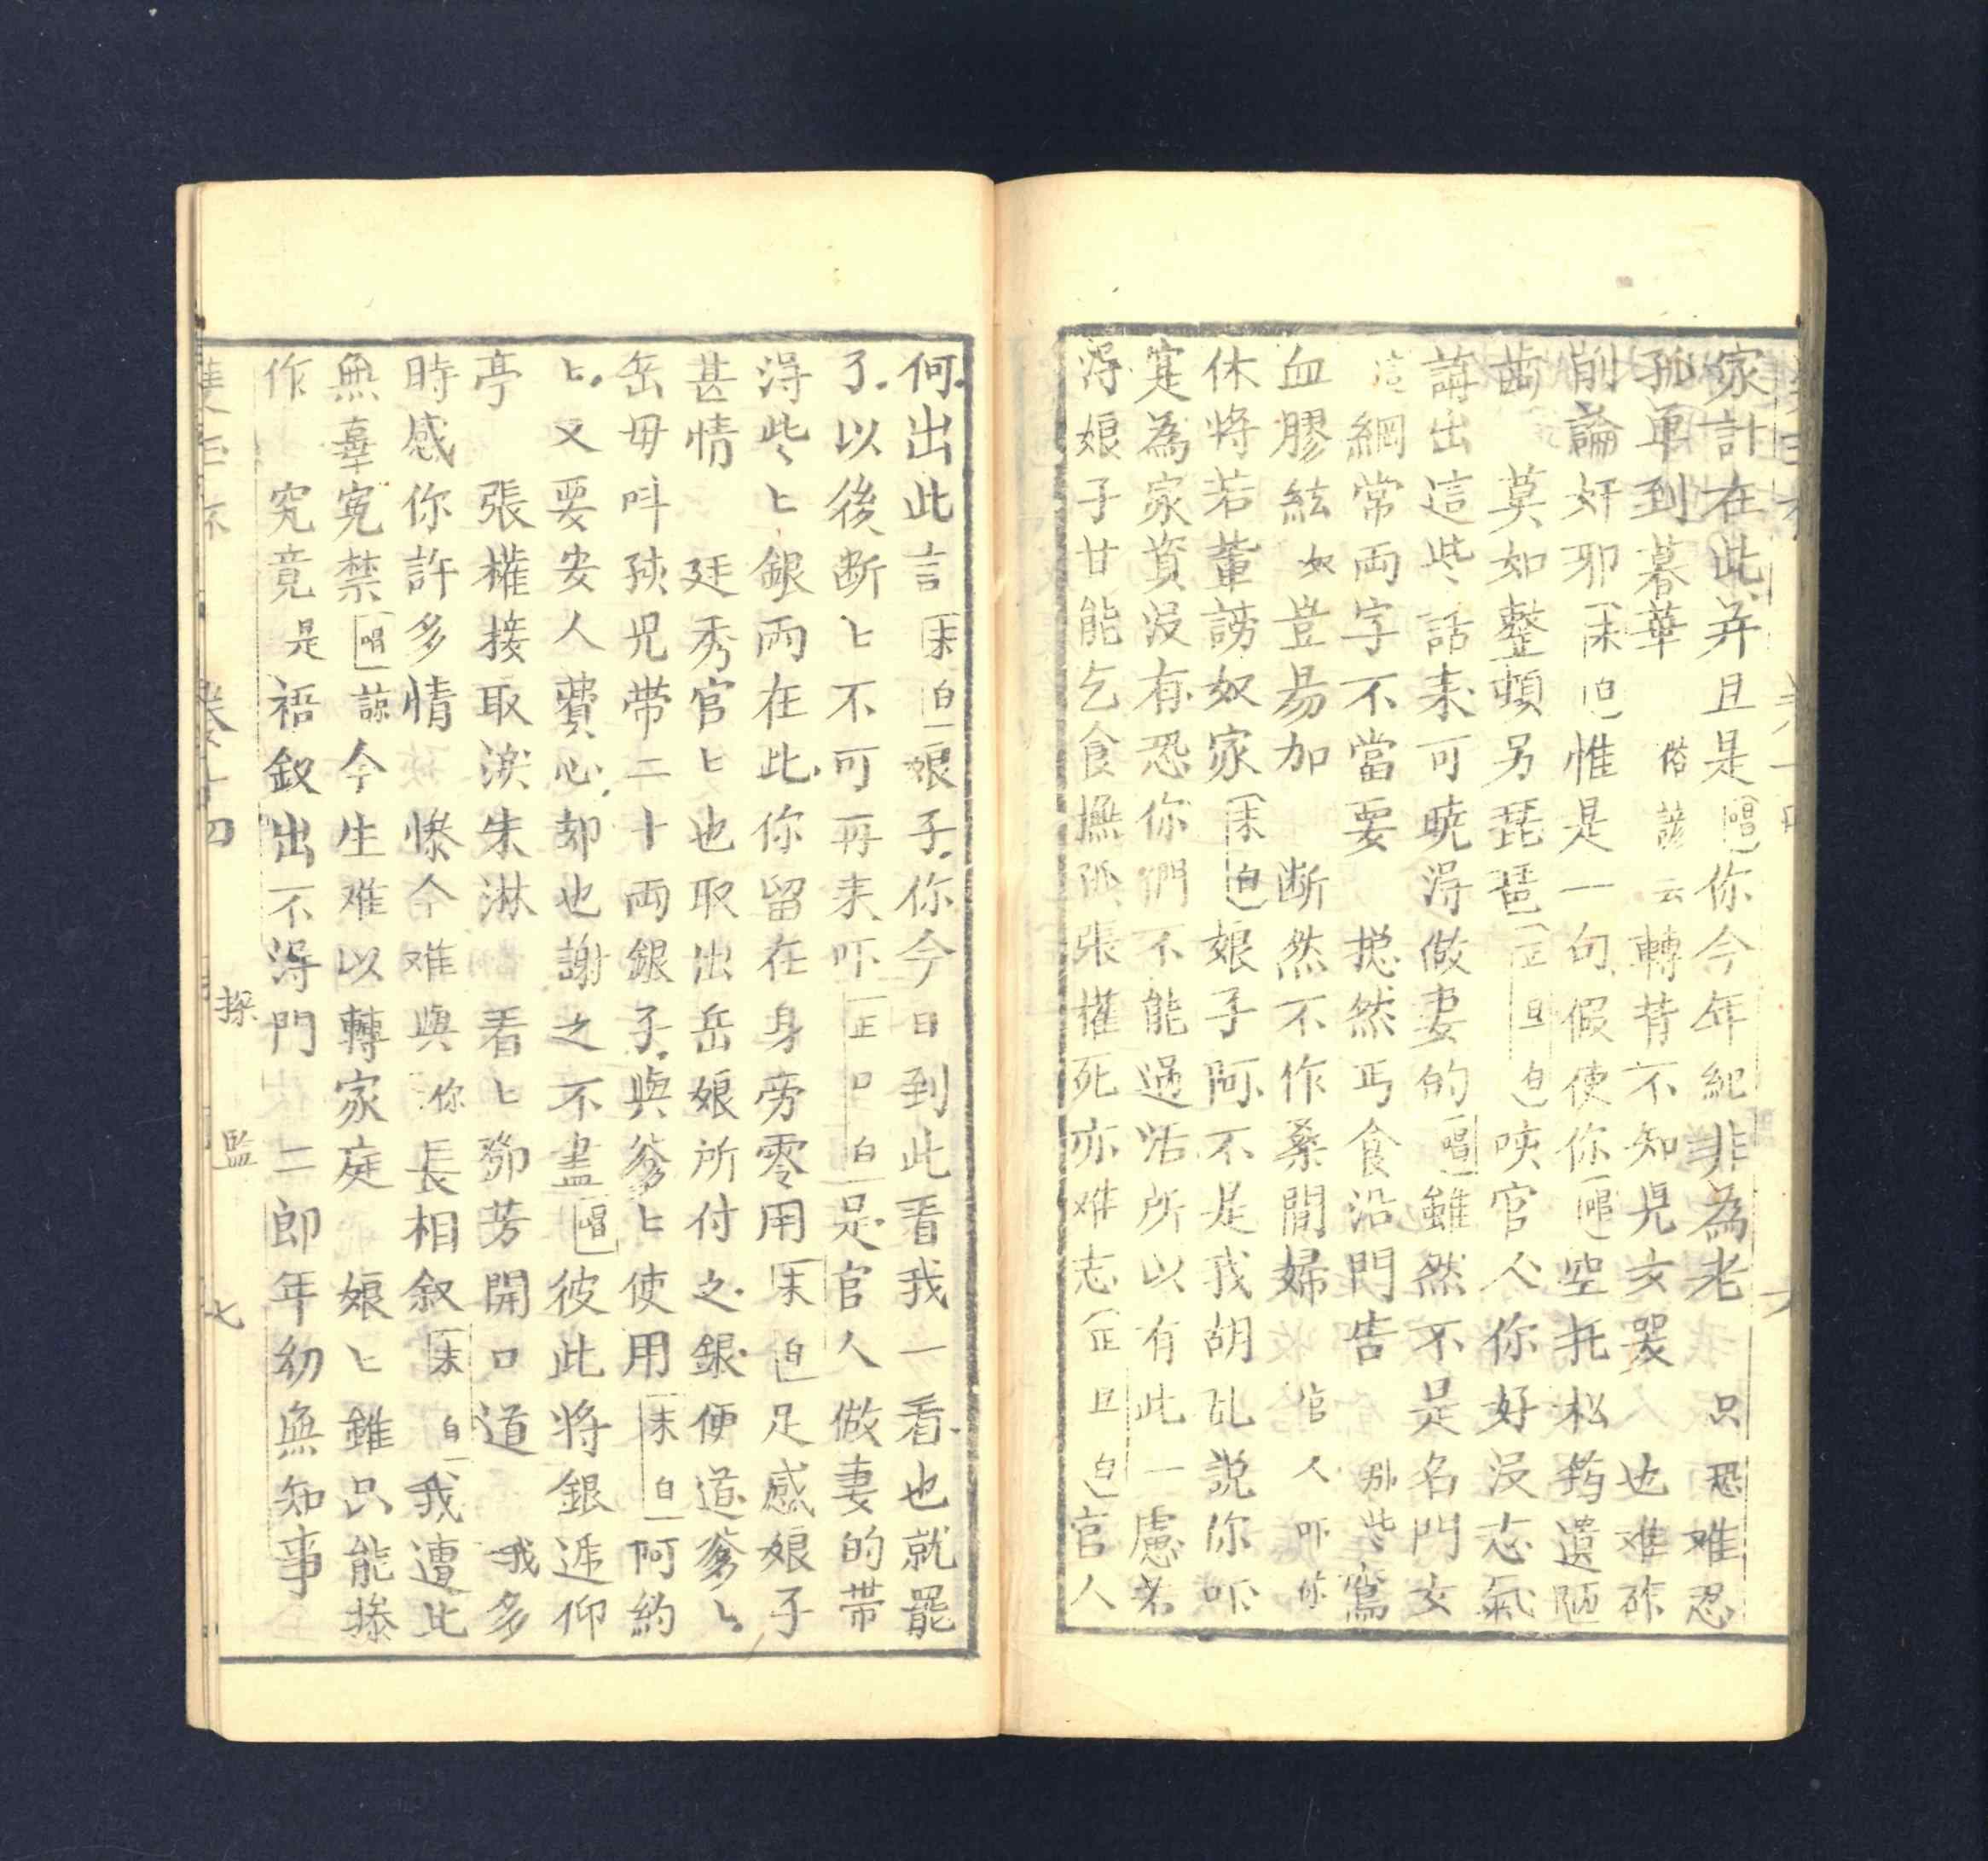 家計在此并且是唱你今年紀非為老只恐难忍
孤单到暮華俗諺云轉背不知兒女哭也难砟
削論奸邪末白惟是一句假使你唱空托松筠遺陋
齒莫如整頓另琵琶正旦白唉官人你好没志氣
講出這些話来可暁淂做妻的唱雖然不是名門女
這綱常両字不當要揔然丐食沿門告那些鸞
血膠絃如豈易加断然不作桑間婦官人吓你
休将若輩謗奴家末白娘子阿不是我胡乱説你吓
寔為家貲没有恐你們不能過活所以有此一慮若
淂娘子甘能乞食撫孤張權死亦难志正旦白官人
何出此言末白娘子你今日到此看我一看也就罷
了以後断匕不可再来吓正旦白是官人做妻的带
淂些匕銀両在此你留在身旁零用末白足感娘子
甚情廷秀官匕也取出岳娘所付之銀便道爹匕
岳毋呌孩兒带二十両銀子與爹匕使用末白阿約
匕又要安人費心却也謝之不盡唱彼此将銀逓仰
亭張權接取淚朱淋看匕鄧芳開口道我多
時感你許多情惨今难與你長相叙末白我遭此
無辜寃禁唱諒今生难以轉家庭娘匕雖只能摻
作究竟是裙釵出不淂門二郎年幼無知事
卷十四 探監 七